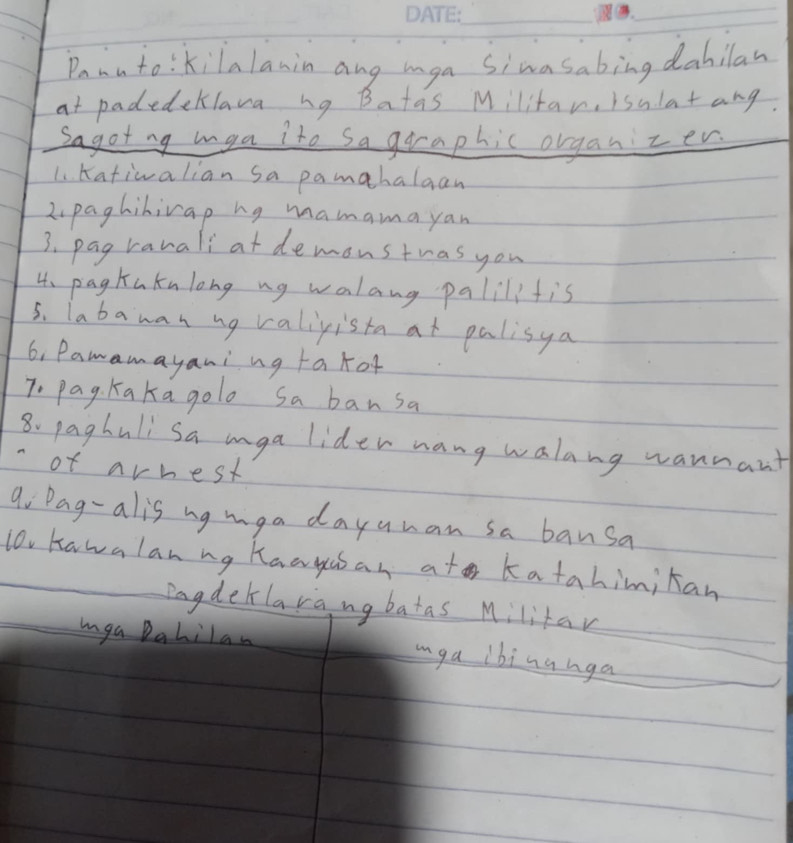 DATE: NO.
Panuto: Kilalanin ang mga Sinasabing dahilan
at padedeklara ng Batas Militar. Isulat ang
Sagot ng mga ito sa ggraphic organizer.
1. Katiwalian sa pamahalaan
2. paghihirap ng mamamayan
3. pag rarali at demonstrasyon
4. pagkukulong ng walang palilitis
5. labanan ng raliyista at pulisya
6. Pamamayani ng takot
7. pagkakagolo sa bansa
8. paghuli sa mga lider nang walang warrant
of arrest
9. Pag-alis ng mga dayuhan sa bansa
10. Kawalan ng Kaayusan at Katahimikan
Pagdeklara ng batas Militar
mga Dahilan mga ibinunga